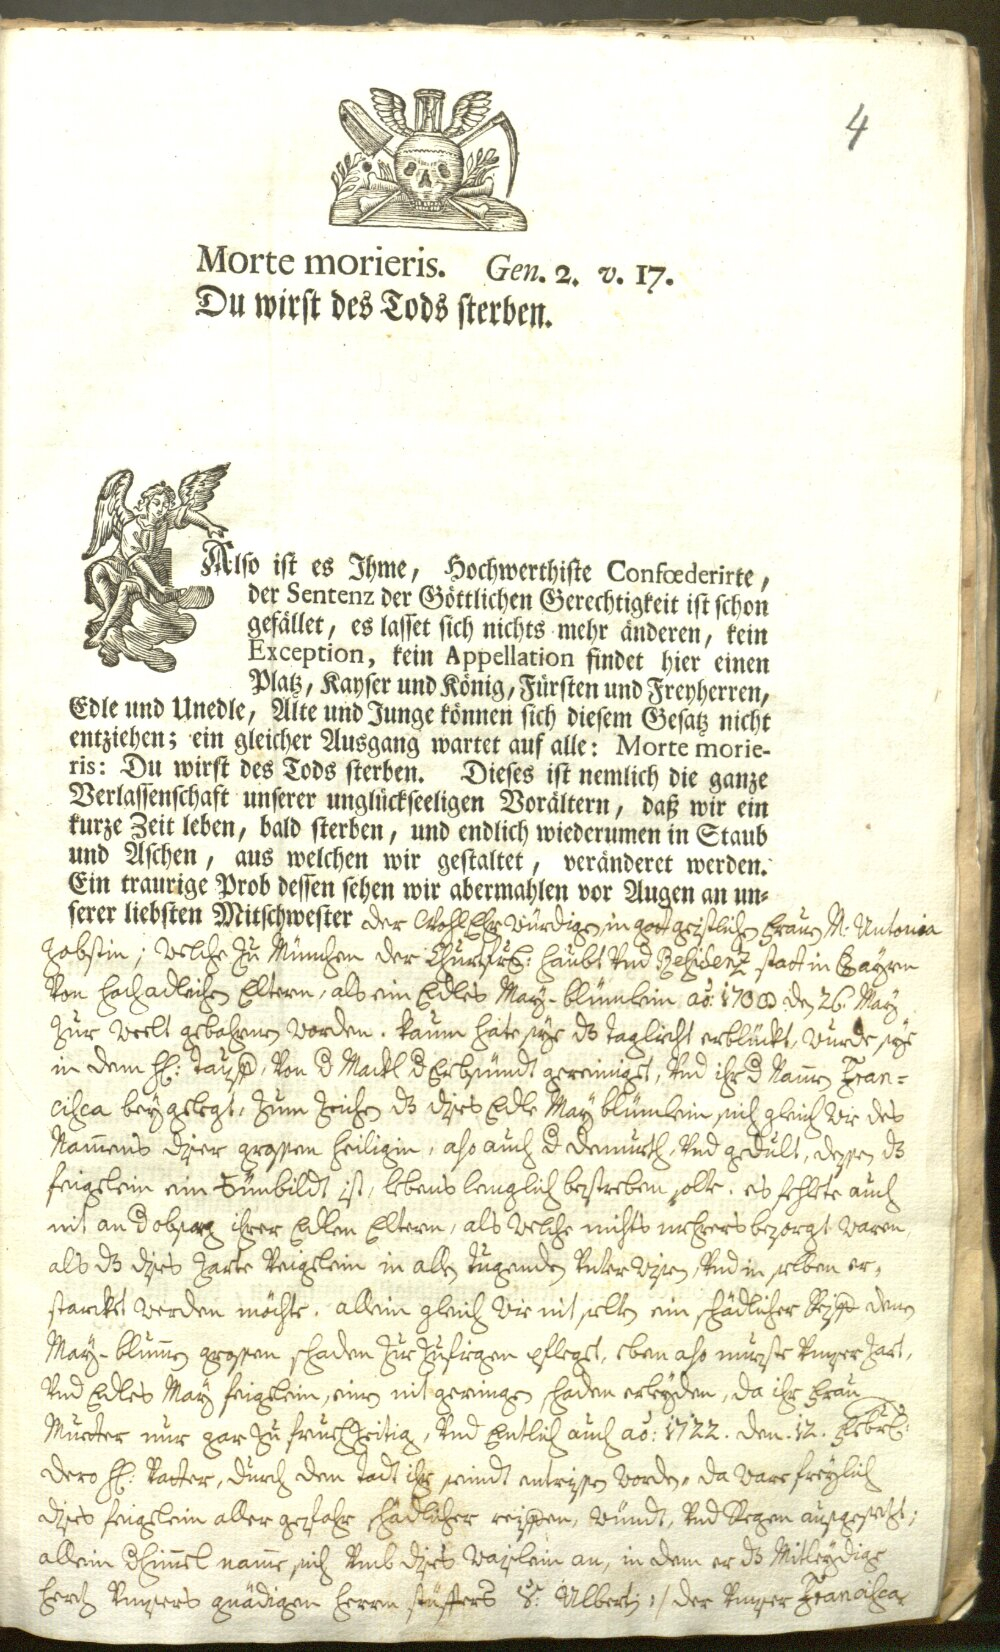 4
Morte morieris. Gen. 2. v. 17.
Du wirst des Tods sterben.
Also ist es Ihme, Hochwerthiste Confœderirte,
der Sentenz der Göttlichen Gerechtigkeit ist schon
gefället, es lasset sich nichts mehr änderen, kein
Exception, kein Appellation findet hier einen
Platz, Kayser und König, Fürsten und Freyherren,
Edle und Unedle, Alte und Junge können sich diesem Gesatz nicht
entziehen; ein gleicher Ausgang wartet auf alle: Morte morie-
ris: Du wirst des Tods sterben. Dieses ist nemlich die ganze
Verlassenschaft unserer unglückseeligen Vorältern, daß wir ein
kurze Zeit leben, bald sterben, und endlich wiederumen in Staub
und Aschen, aus welchen wir gestaltet, veränderet werden.
Ein traurige Prob dessen sehen wir abermahlen vor Augen an un-
serer liebsten Mitschwester der WohlEhrwürdigen in gott geistlichen Frauen M: Antonia
Jobstin; welche zu München der haubt Vnd Residenz statt in Bayrn
Von hochadelichen Eltern, als ein Edles May-blümlein den 26. May
zur welt gebohren worden. kaum hate sye dz taglicht erblückt, wurde sye
in dem Hl: Von d Mackl d Erbsündt gereiniget, Vnd ihr d Namen Fran=
cisca beygelegt, zum zeichen dz dises Edle May blümlein sich gleich wie des
Namens diser grossen heiligin, also auch d demueth, Vnd gedult, dessen dz
feigelein ein Sünbildt ist, lebens lenglich bestreben solte. es fehlte auch
nit an d obsorg ihrer Edlen Eltern, als welche nichts mehrers besorgt waren,
als dz dises zarte Veigelein in allen tugenden Vnterwisen, Vnd in selben er-
starcket werden möchte. allein gleich wie nit selten ein schädlicher Reiff denen
May-blumen grossen schaden pfleget, eben also muste Vnser zart,
Vnd Edles May feigelein, einen nit geringen schaden erleyden, da ihr Frau
Muetter nur gar zu fruehzeitig, Vnd Entlich auch aõ: 1722. den. 12. Febr:
dero H: Vatter, durch den Todt ihr seindt entrissen worden. da ware freylich
dises feigelein aller gefahr schädlicher reiffen, windt, Vnd Regen ausgesetzt;
allein d himmel name sich Vmb dises waislein an, in dem er dz Mitleydige
hertz Vnsers gnädigen Herrn stüffters S: Alberti :/ der Vnser Francisca